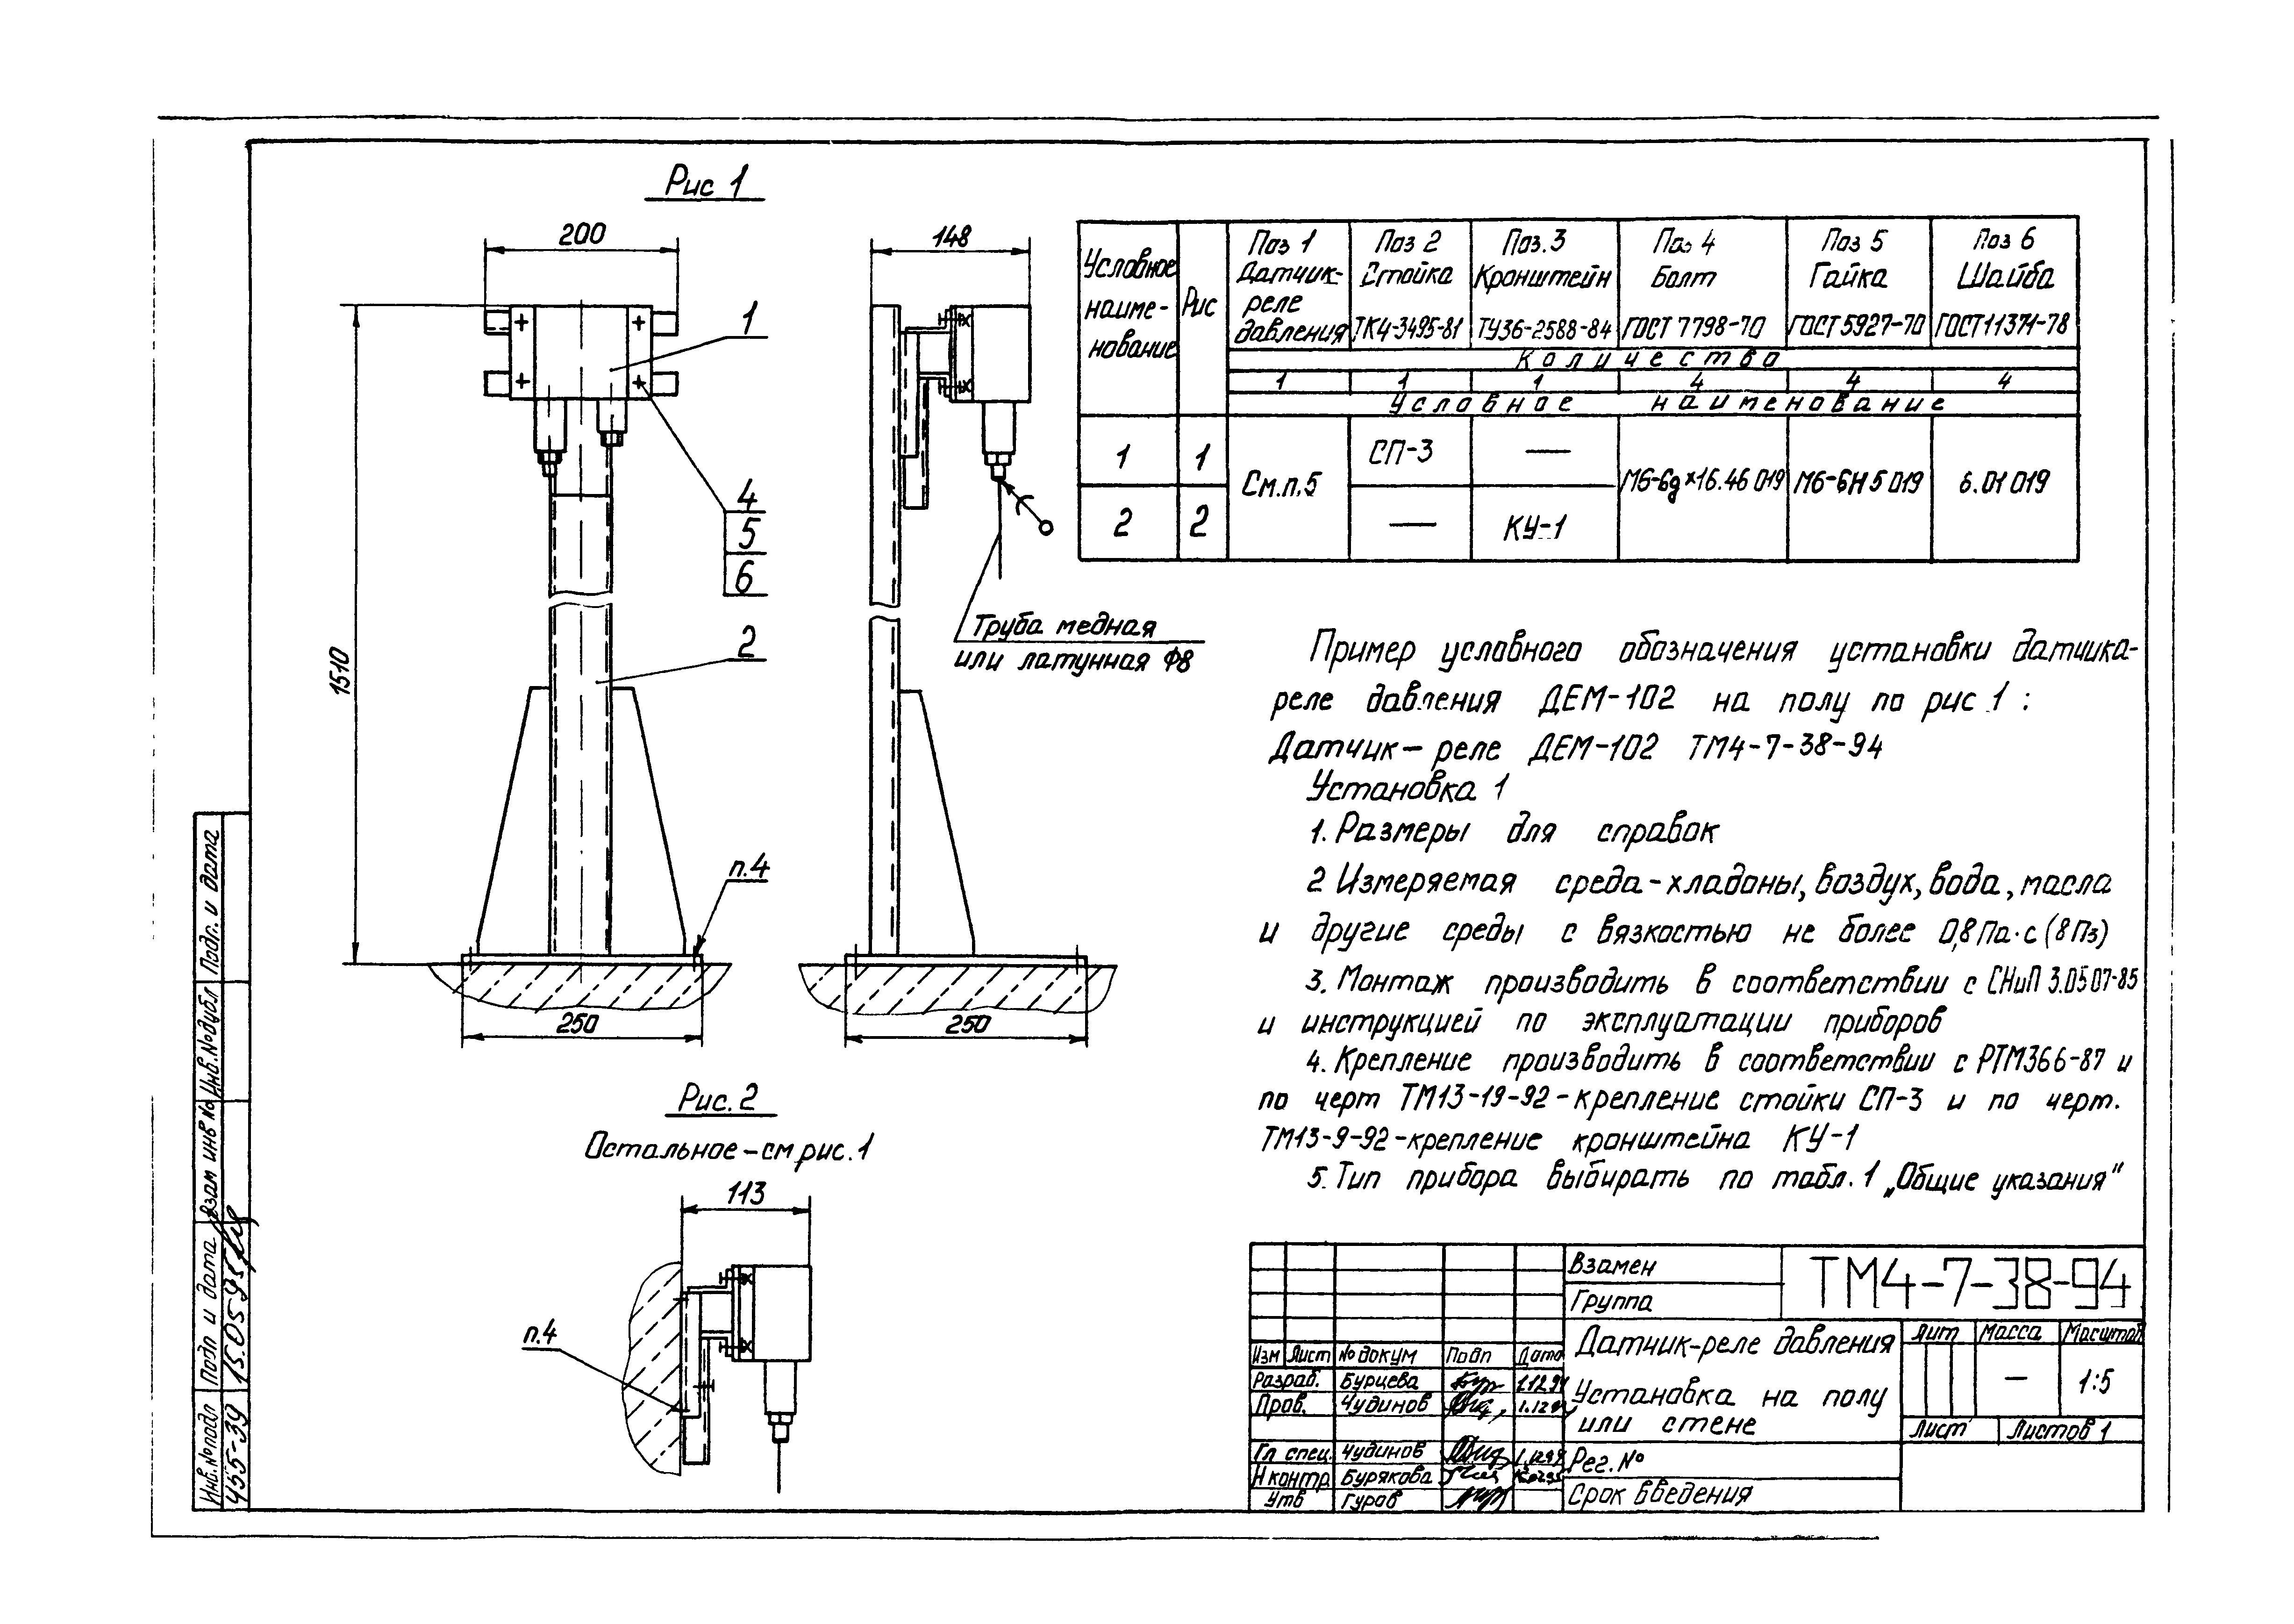 Рис 1
200
148
1
4
5
6
2
1510
п.4
250
250
Труба медная
или латунная Ф8
Условное
наиме-
нование
Рис
Поз 1
Датчик-
реле
давления
Поз 2
Стойка
ТК4-3495-81
Поз.3
Кронштейн
ТУ36-2588-84
Поз 4
Болт
ГОСТ 7798-70
Поз 5
Гайка
ГОСТ 5927-70
Поз 6
Шайба
ГОСТ11371-78
Количество
1 1 1 4 4 4
Условное наименование
1 1 См.п.5 СП-3 — М6-6g×16.46 019 М6-6Н 5 019 6.01 019
2 2 — КУ-1
Пример условного обозначения установки датчика-
реле давления ДЕМ-102 на полу по рис 1 :
Датчик-реле ДЕМ-102 ТМ4-7-38-94
Установка 1
1. Размеры для справок
2 Измеряемая среда-хладоны, воздух, вода, масла
и другие среды с вязкостью не более 0,8 Па·с (8 Пз)
3. Монтаж производить в соответствии с СНиП 3.05 07-85
и инструкцией по эксплуатации приборов
4. Крепление производить в соответствии с РТМ36 6-87 и
по черт ТМ13-19-92-крепление стойки СП-3 и по черт.
ТМ13-9-92-крепление кронштейна КУ-1
5. Тип прибора выбирать по табл. 1 „Общие указания"
Рис. 2
Остальное-см рис. 1
113
п.4
Взамен
Группа
ТМ4-7-38-94
Изм Лист № докум Подп Дата
Разраб. Бурцева 1.12.94
Пров. Чудинов 1.12.94
Гл спец. Чудинов
Н контр Бурякова
Утв Гуров
Датчик-реле давления
Установка на полу
или стене
Лит Масса Масштаб
— 1:5
Лист Листов 1
Рег. №
Срок введения
Подп. и дата
Инв. № дубл
Взам инв №
Подп и дата 15.05 95
Инв. № подл 455-39